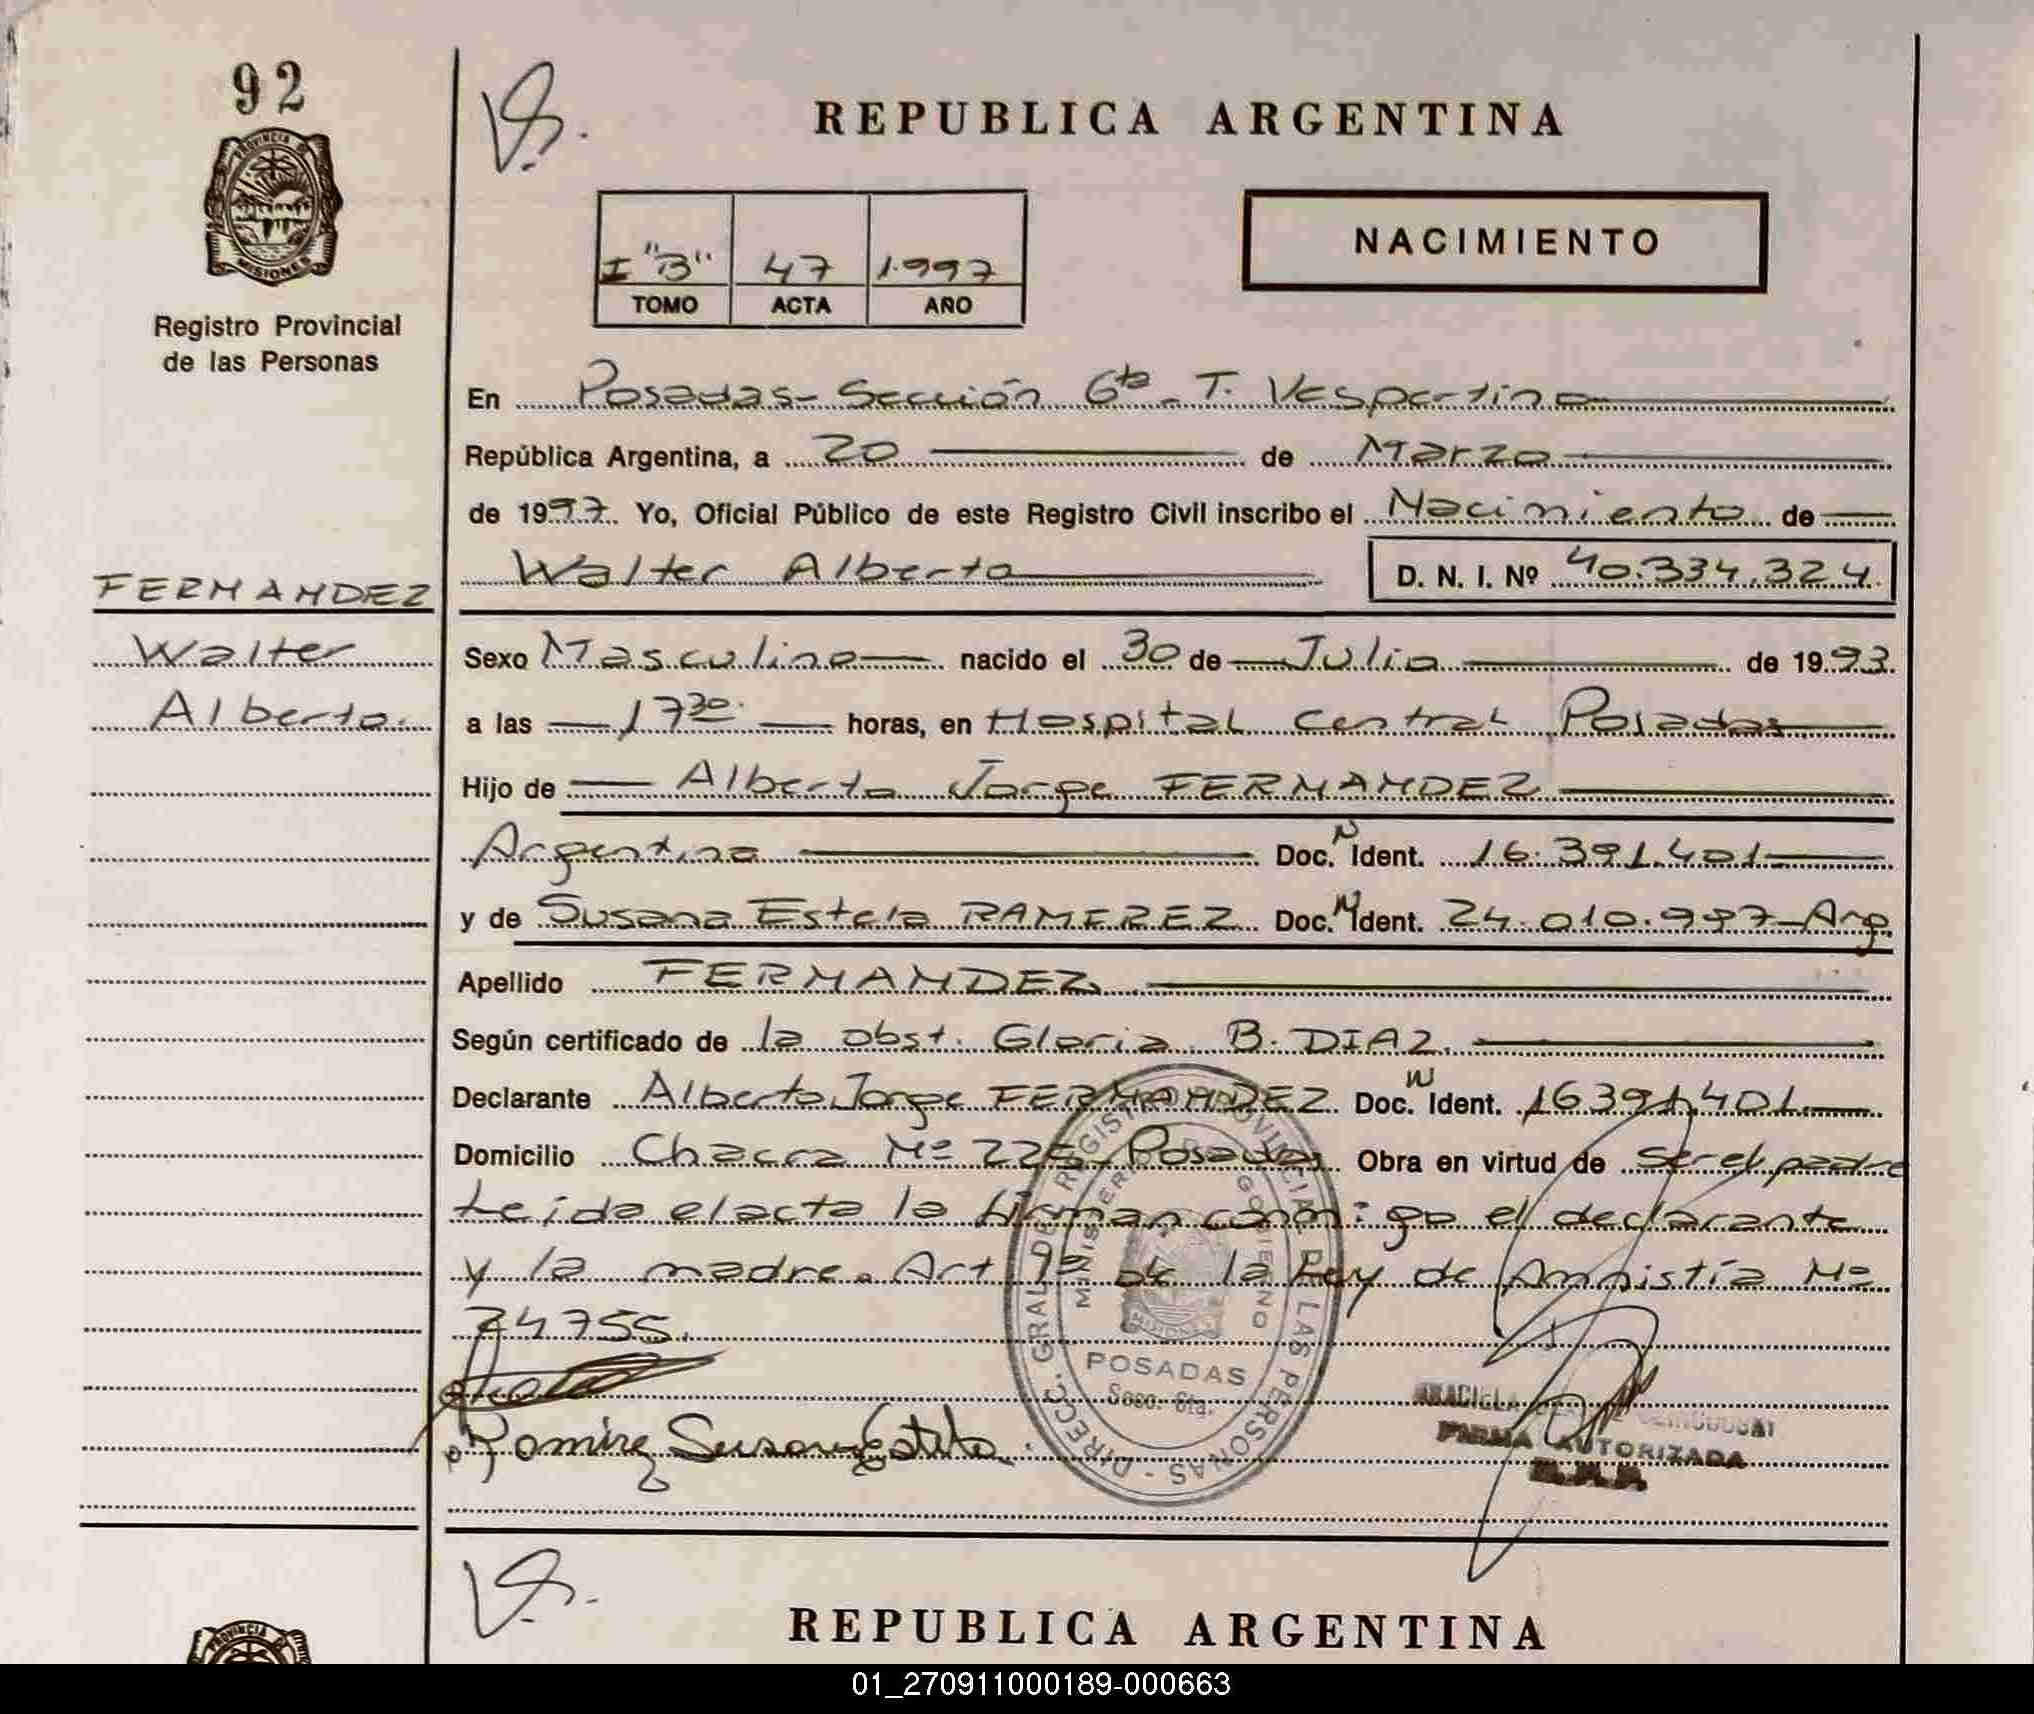 92
PROVINCIA DE
MISIONES
Registro Provincial
de las Personas
FERNANDEZ
Walter
Alberto.
REPUBLICA ARGENTINA
I "B" 47 1.997
TOMO ACTA AÑO
NACIMIENTO
En Posadas- Sección 6ta. T. Vespertino
República Argentina, a 20 de Marzo
de 1997. Yo, Oficial Público de este Registro Civil inscribo el Nacimiento de
Walter Alberto D. N. I. Nº 40.334.324
Sexo Masculino nacido el 30 de Julio de 1993.
a las 17 30. horas, en Hospital Central Posadas
Hijo de Alberto Jorge FERNANDEZ
Argentino Doc. N Ident. 16.391.401
y de Susana Estela RAMEREZ Doc. N Ident. 24.010.997-Arg.
Apellido FERNANDEZ
Según certificado de la obst. Gloria B. DIAZ.
Declarante Alberto Jorge FERNANDEZ Doc. N Ident. 16391.401
Domicilio Chacra Nº 225, Posadas Obra en virtud de ser el padre
Leída el acta la firman conmigo el declarante
y la madre. Art 9º de la Ley de Amnistía Nº
24755.
DIRECC. GRAL DEL REGISTRO PROVINCIAL DE LAS PERSONAS
MINISTERIO DE GOBIERNO
POSADAS
Secc. 6ta.
Ramirez Susana Estela
FIRMA AUTORIZADA
REPUBLICA ARGENTINA
PROVINCIA DE
01_270911000189-000663